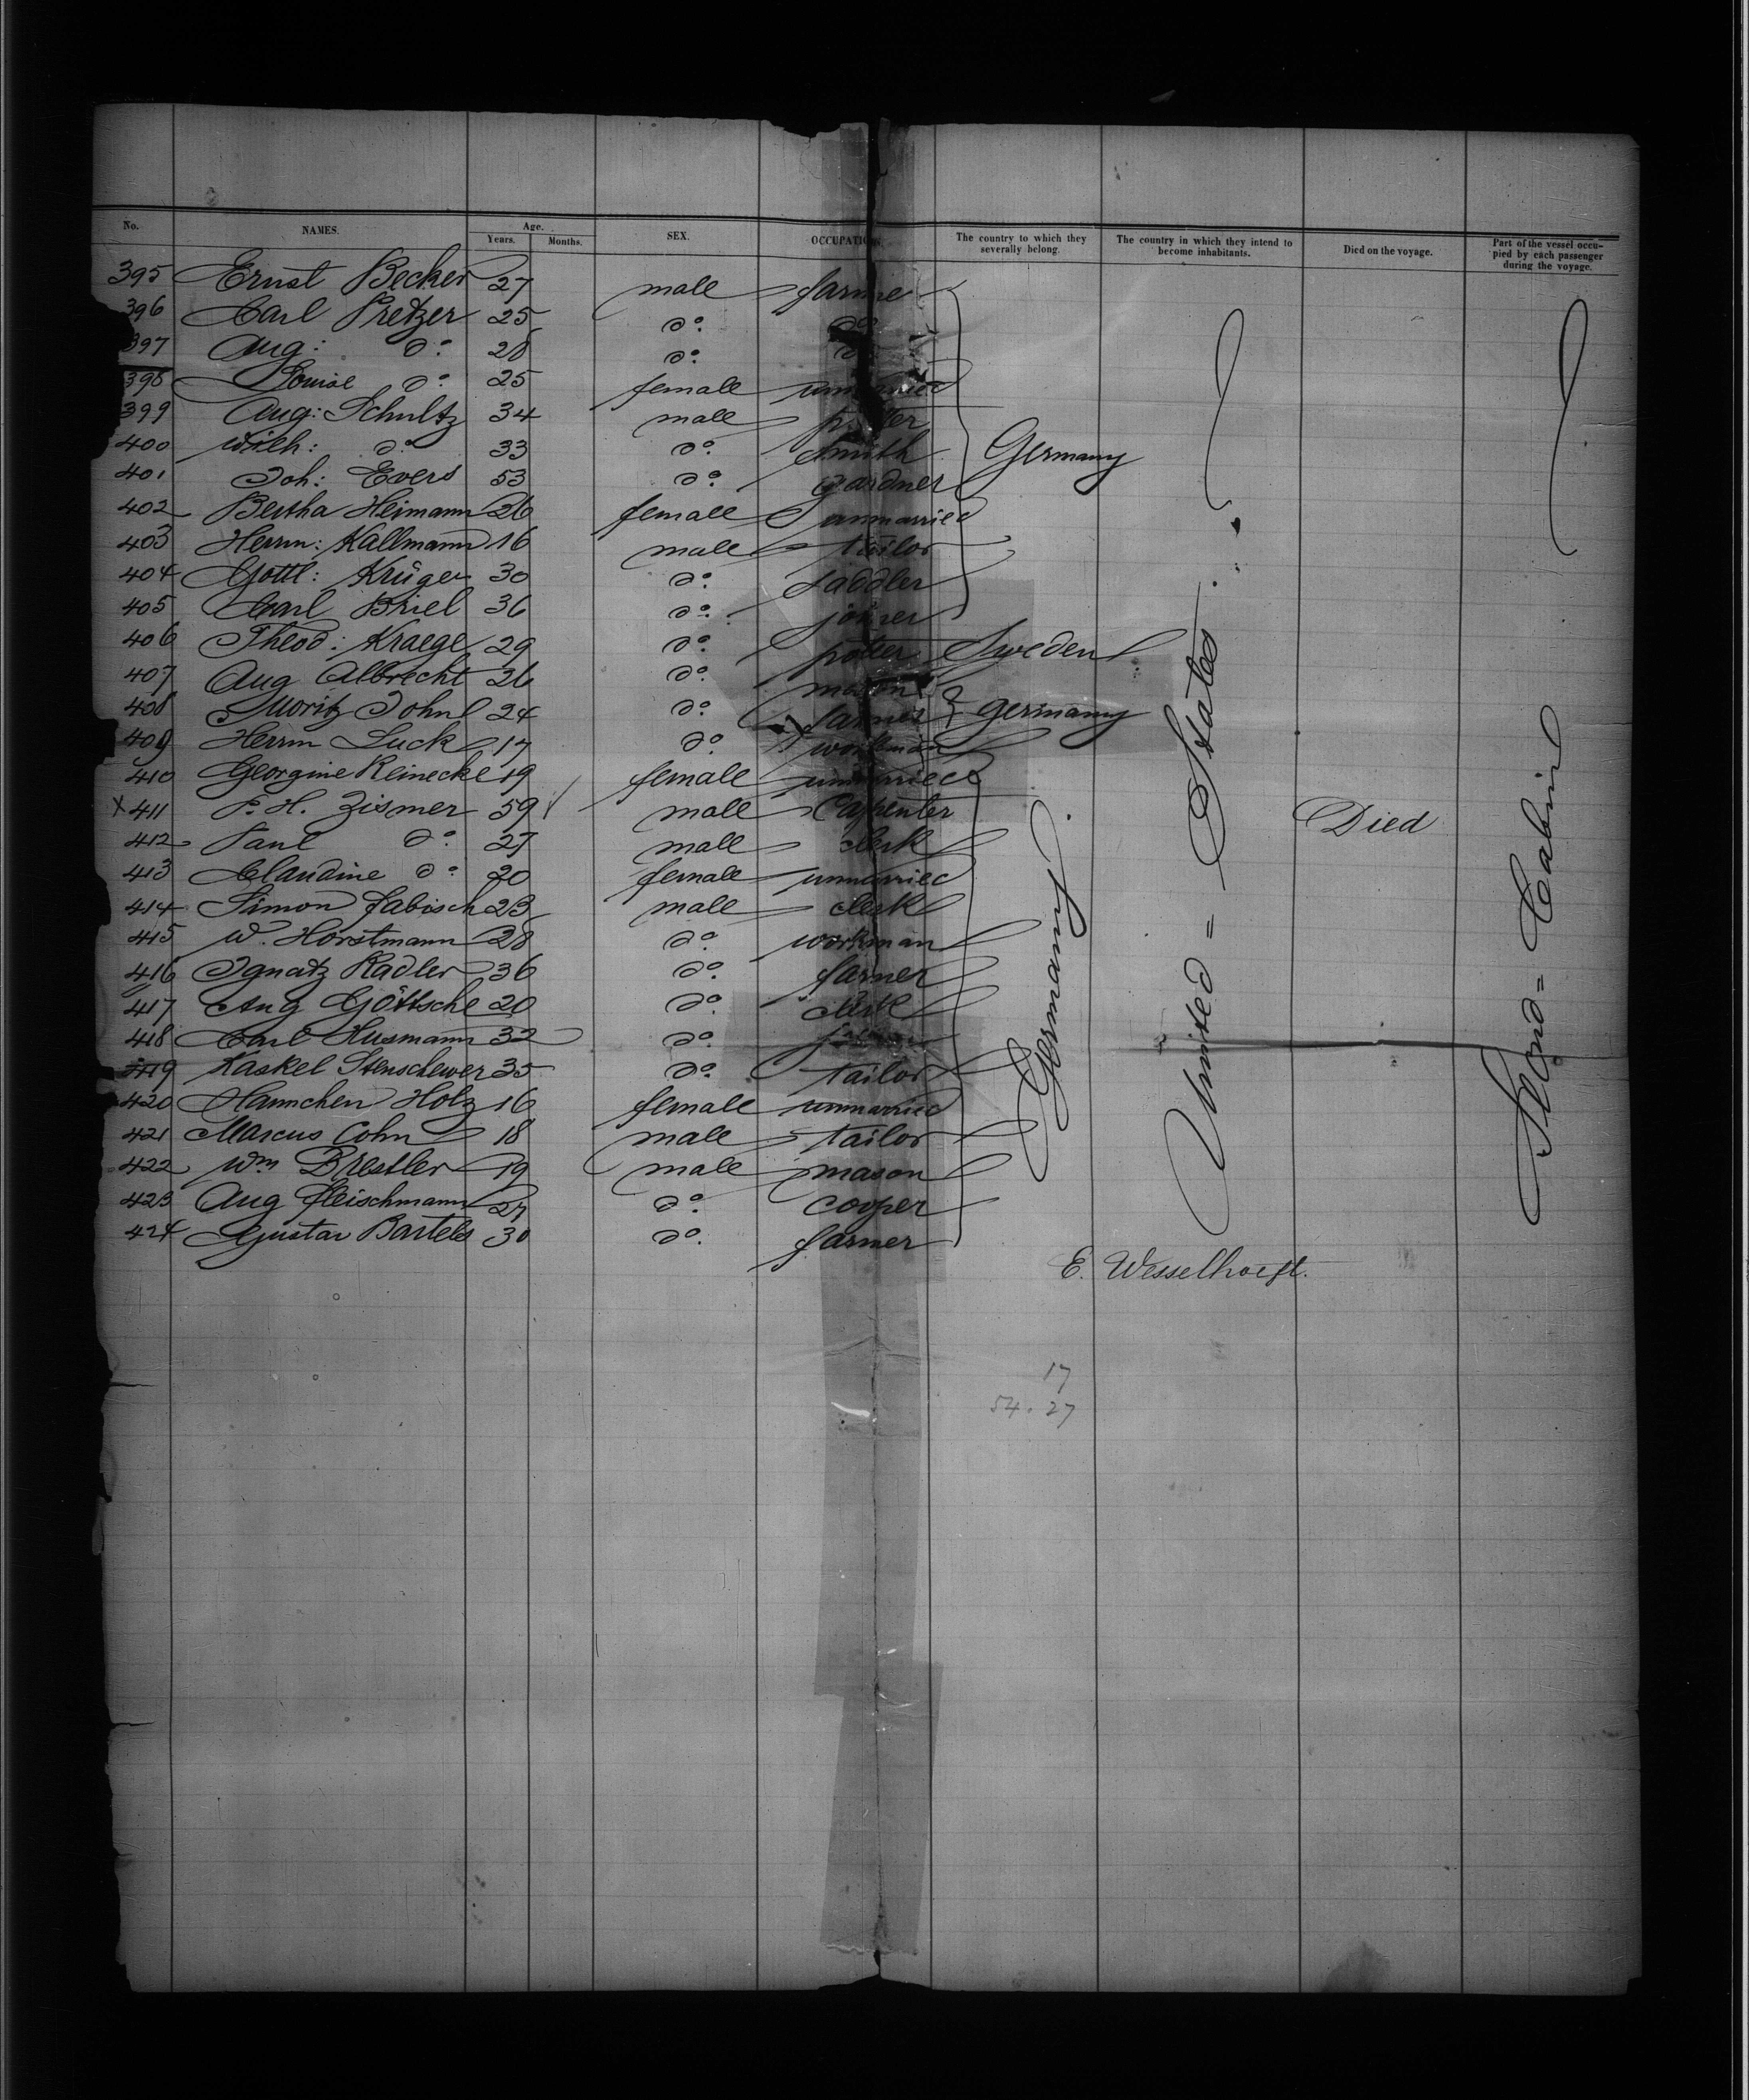 No. NAMES. Age. Years. Months. SEX. OCCUPATION. The country to which they severally belong. The country in which they intend to become inhabitants. Died on the voyage. Part of the vessel occupied by each passenger during the voyage.
395 Ernst Becker 27 male farme
396 Carl Pretzer 25 do. do
397 Aug: do: 28 do.
398 Louise do: 25 female unmarried
399 Aug: Schultz 34 male
400 Wilh: do: 33 do. smith Germany
401 Joh: Evers 53 do. gardner
402 Bertha Heimann 26 female unmarried
403 Herrm: Kallmann 16 male tailor
404 Gottl: Krüger 30 do. saddler
405 Carl Briel 36 do. joiner
406 Theod: Kraege 29 do. potter Sweden
407 Aug Albrecht 26 do. mason
408 Moritz John 24 do. farmer Germany
409 Herrm Luck 17 do. workman
410 Georgine Reinecke 19 female unmarried
x 411 F. H. Zismer 59 male Carpenter Died
412 Paul do: 27 male clerk
413 Claudine do: 20 female unmarried
414 Simon Fabisch 23 male clerk
415 W. Horstmann 28 do. workman
416 Ignatz Radler 36 do. farmer
417 Aug Göttsche 20 do. clerk
418 Carl Husmann 32 do.
419 Kaskel Stenschewer 35 do. tailor
420 Hannchen Holz 16 female unmarried
421 Marcus Cohn 18 male tailor
422 Wm Brestler 19 male mason
423 Aug Fleischmann 27 do. cooper
424 Gustav Bartels 30 do. farmer
Germany.
United = States
Cabin
E. Wesselhoeft.
17
54.27